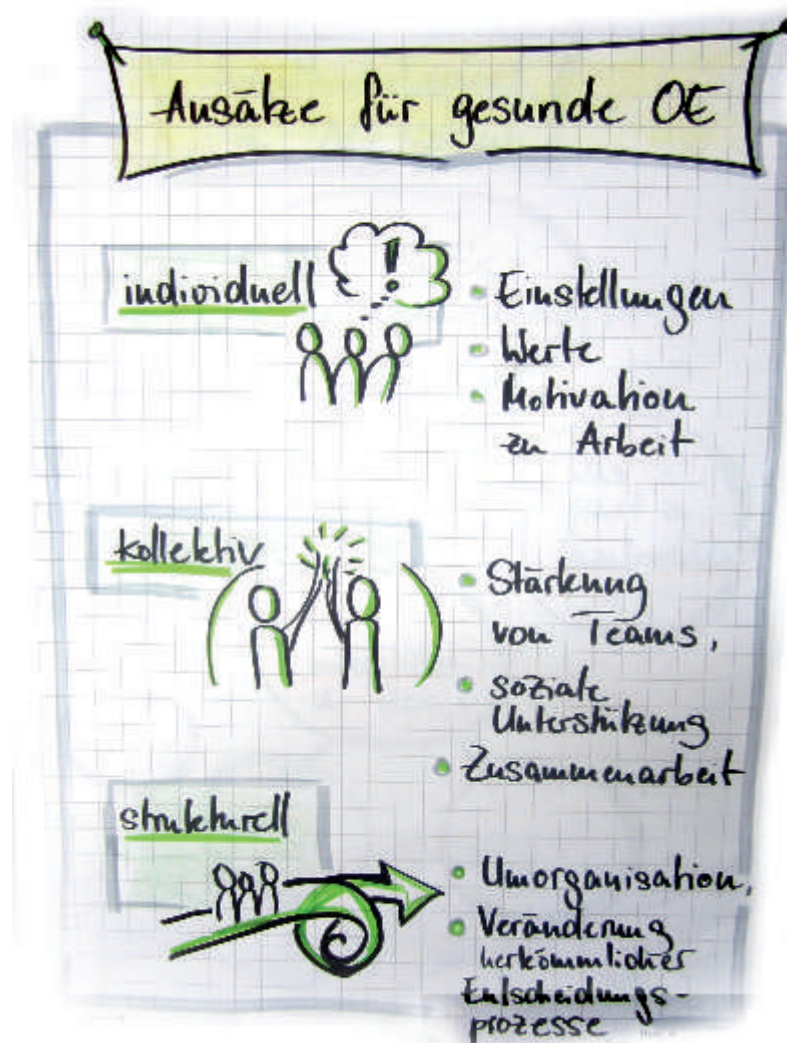 Ansätze für gesunde OE
individuell
!
• Einstellungen
• Werte
• Motivation
zu Arbeit
kollektiv
• Stärkung
von Teams,
• soziale
Unterstützung
• Zusammenarbeit
strukturell
• Umorganisation,
• Veränderung
herkömmlicher
Entscheidungs-
prozesse